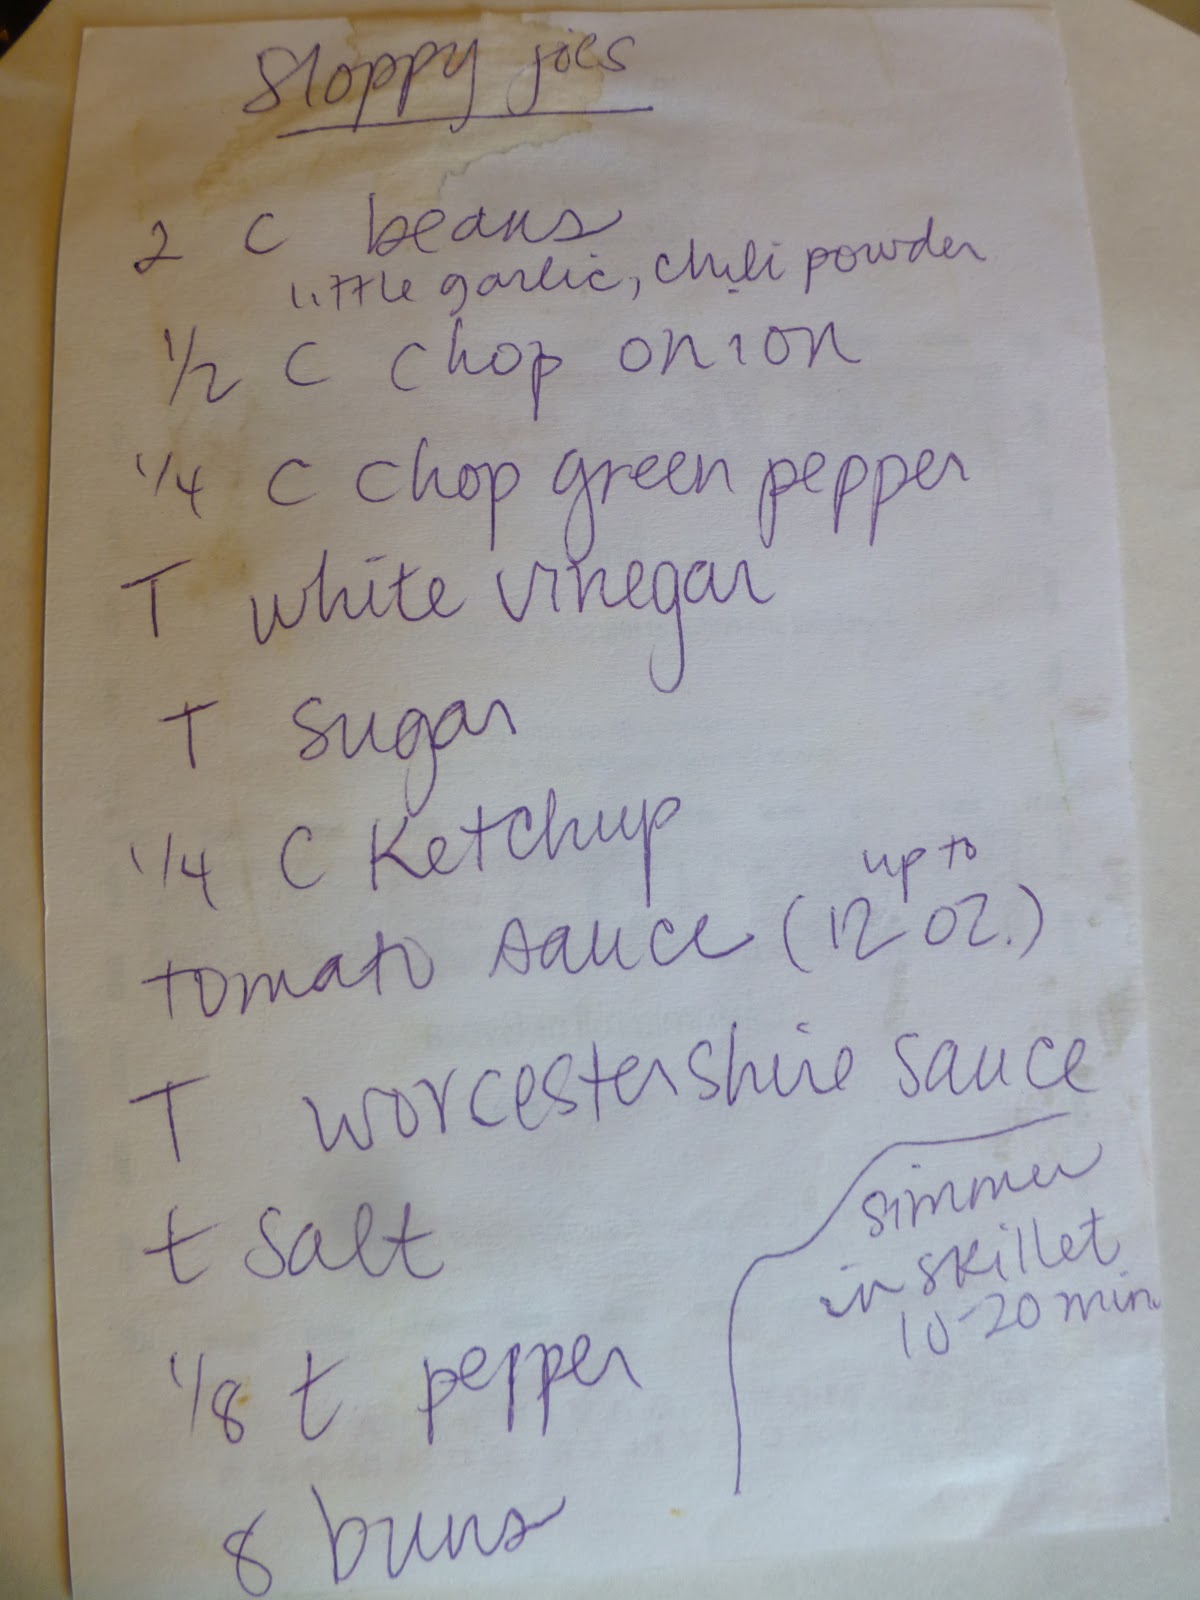 Sloppy joes
2 C beans
little garlic, chili powder
1/2 C chop onion
1/4 C chop green pepper
T white vinegar
T sugar
1/4 C Ketchup
up to
tomato sauce (12 oz.)
T worcestershire sauce
t salt
1/8 t pepper
8 buns
simmer
in skillet
10-20 min